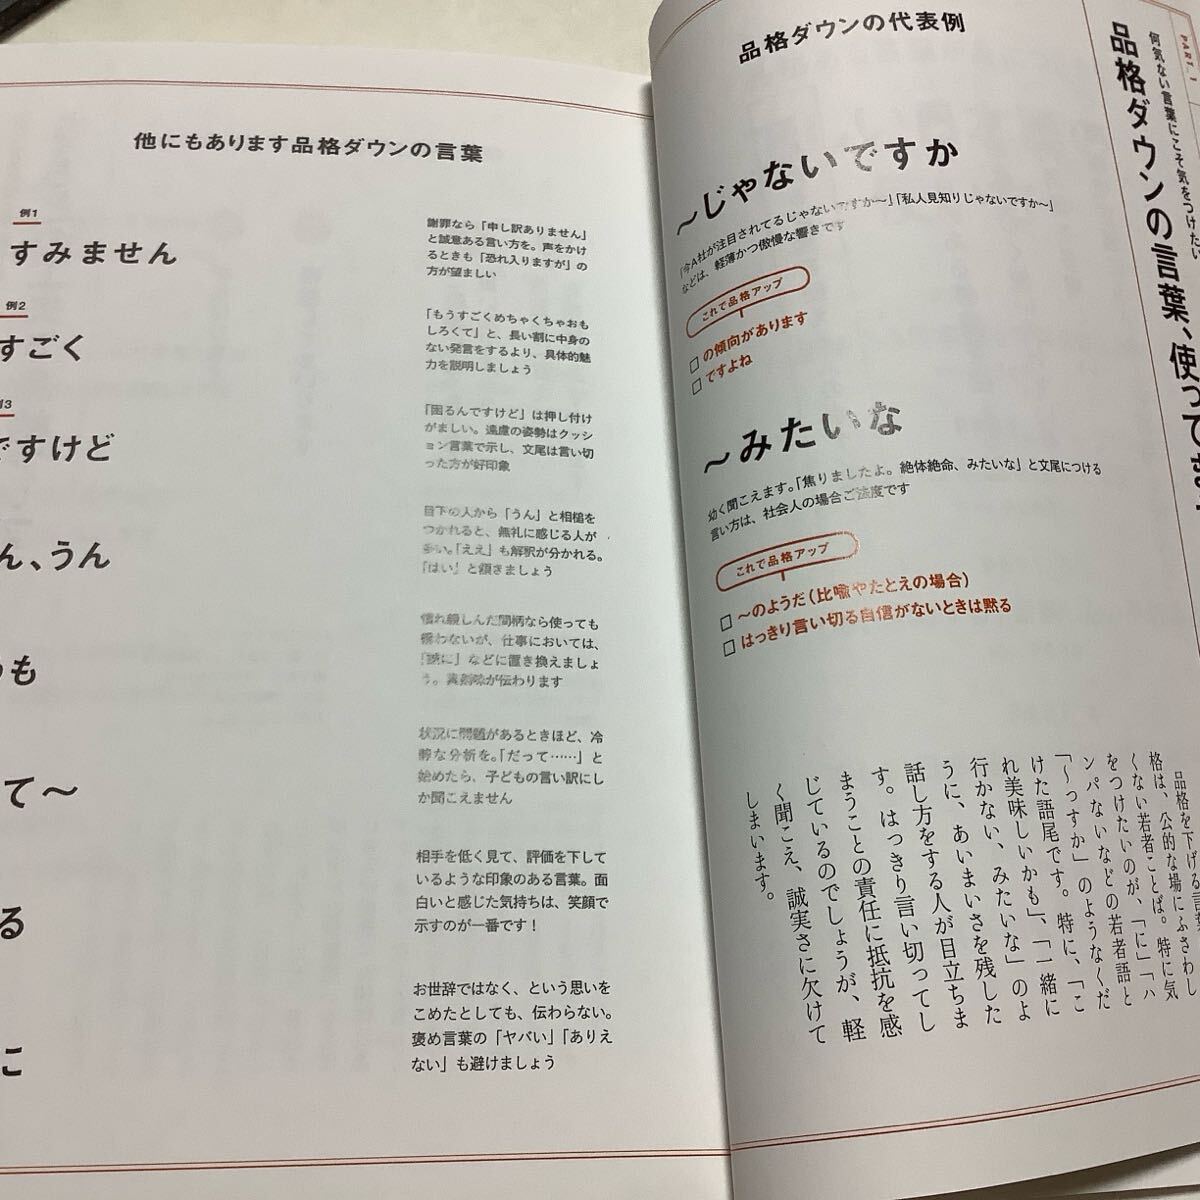 PART 1
何気ない言葉にこそ気をつけたい
品格ダウンの言葉、使ってま
品格ダウンの代表例
〜じゃないですか
「今A社が注目されてるじゃないですか〜」「私人見知りじゃないですか〜」
などは、軽薄かつ傲慢な響きです
これで品格アップ
□ の傾向があります
□ ですよね
〜みたいな
幼く聞こえます。「焦りましたよ。絶体絶命、みたいな」と文尾につける
言い方は、社会人の場合ご法度です
これで品格アップ
□ 〜のようだ(比喩やたとえの場合)
□ はっきり言い切る自信がないときは黙る
品格を下げる言葉
格は、公的な場にふさわし
くない若者ことば。特に気
をつけたいのが、「に」「ハ
ンパないなどの若者語と
「〜っすか」のようなくだ
けた語尾です。特に、「こ
れ美味しいかも」、「一緒に
行かない、みたいな」のよ
うに、あいまいさを残した
話し方をする人が目立ちま
す。はっきり言い切ってし
まうことの責任に抵抗を感
じているのでしょうが、軽
く聞こえ、誠実さに欠けて
しまいます。
他にもあります品格ダウンの言葉
例1
すみません
謝罪なら「申し訳ありません」
と誠意ある言い方を。声をかけ
るときも「恐れ入りますが」の
方が望ましい
例2
すごく
「もうすごくめちゃくちゃおも
しろくて」と、長い割に中身の
ない発言をするより、具体的魅
力を説明しましょう
13
ですけど
「困るんですけど」は押し付け
がましい。遠慮の姿勢はクッシ
ョン言葉で示し、文尾は言い切
った方が好印象
ん、うん
目下の人から「うん」と相槌を
つかれると、無礼に感じる人が
多い。「ええ」も解釈が分かれる。
「はい」と頷きましょう
も
慣れ親しんだ間柄なら使っても
構わないが、仕事においては、
「誠に」などに置き換えましょ
う。真剣味が伝わります
て〜
状況に問題があるときほど、冷
静な分析を。「だって……」と
始めたら、子どもの言い訳にし
か聞こえません
る
相手を低く見て、評価を下して
いるような印象のある言葉。面
白いと感じた気持ちは、笑顔で
示すのが一番です!
に
お世辞ではなく、という思いを
こめたとしても、伝わらない。
褒め言葉の「ヤバい」「ありえ
ない」も避けましょう